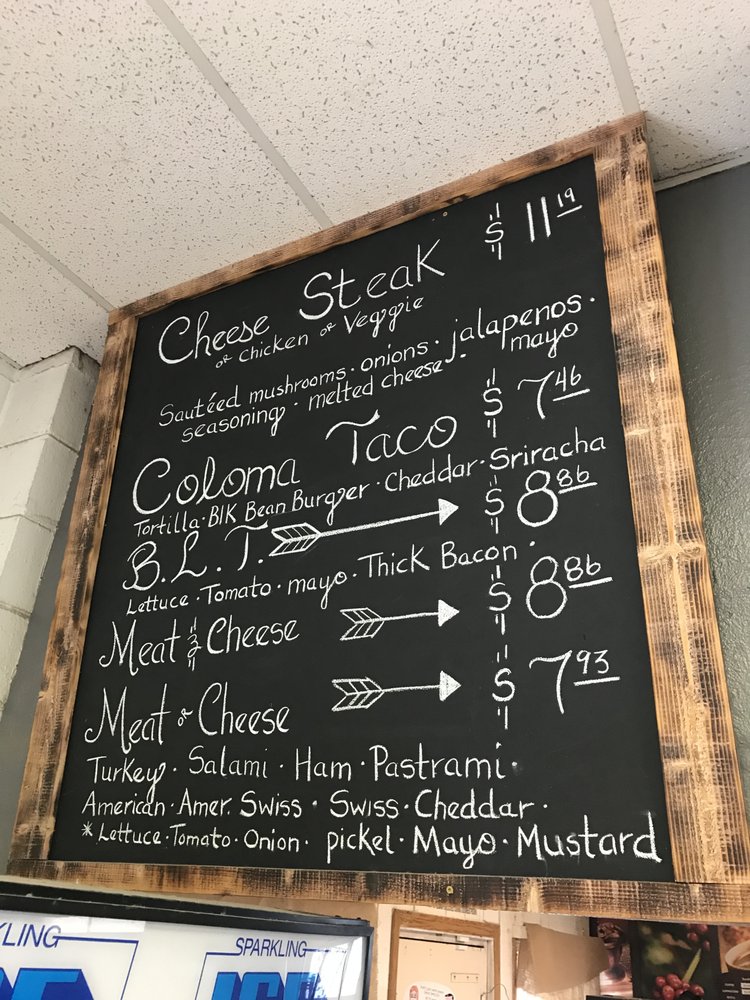 Cheese Steak $ 11 19
or chicken or Veggie
Sautéed mushrooms · onions · jalapenos ·
seasoning · melted cheese · mayo
Coloma Taco $ 7 46
Tortilla · Blk Bean Burger · Cheddar · Sriracha
B.L.T. $ 8 86
Lettuce · Tomato · mayo · Thick Bacon ·
Meat & Cheese $ 8 86
Meat or Cheese $ 7 93
Turkey · Salami · Ham · Pastrami ·
American · Amer. Swiss · Swiss · Cheddar ·
* Lettuce · Tomato · Onion · pickel · Mayo · Mustard
KLING
SPARKLING
ICE